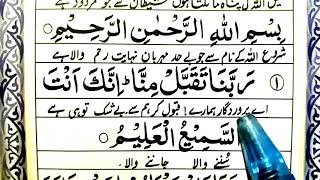 اللہ کی پناہ مانگتا ہوں شیطان سے جو مردود ہے
بِسْمِ اللهِ الرَّحْمٰنِ الرَّحِيْمِ ○
شروع اللہ کے نام سے جو بے حد مہربان نہایت رحم والا ہے
① رَبَّنَا تَقَبَّلْ مِنَّا ؕ اِنَّكَ اَنْتَ
اے پروردگار ہمارے! قبول کر ہم سے بے شک تو ہی ہے
السَّمِيْعُ الْعَلِيْمُ ○
سننے والا جاننے والا..